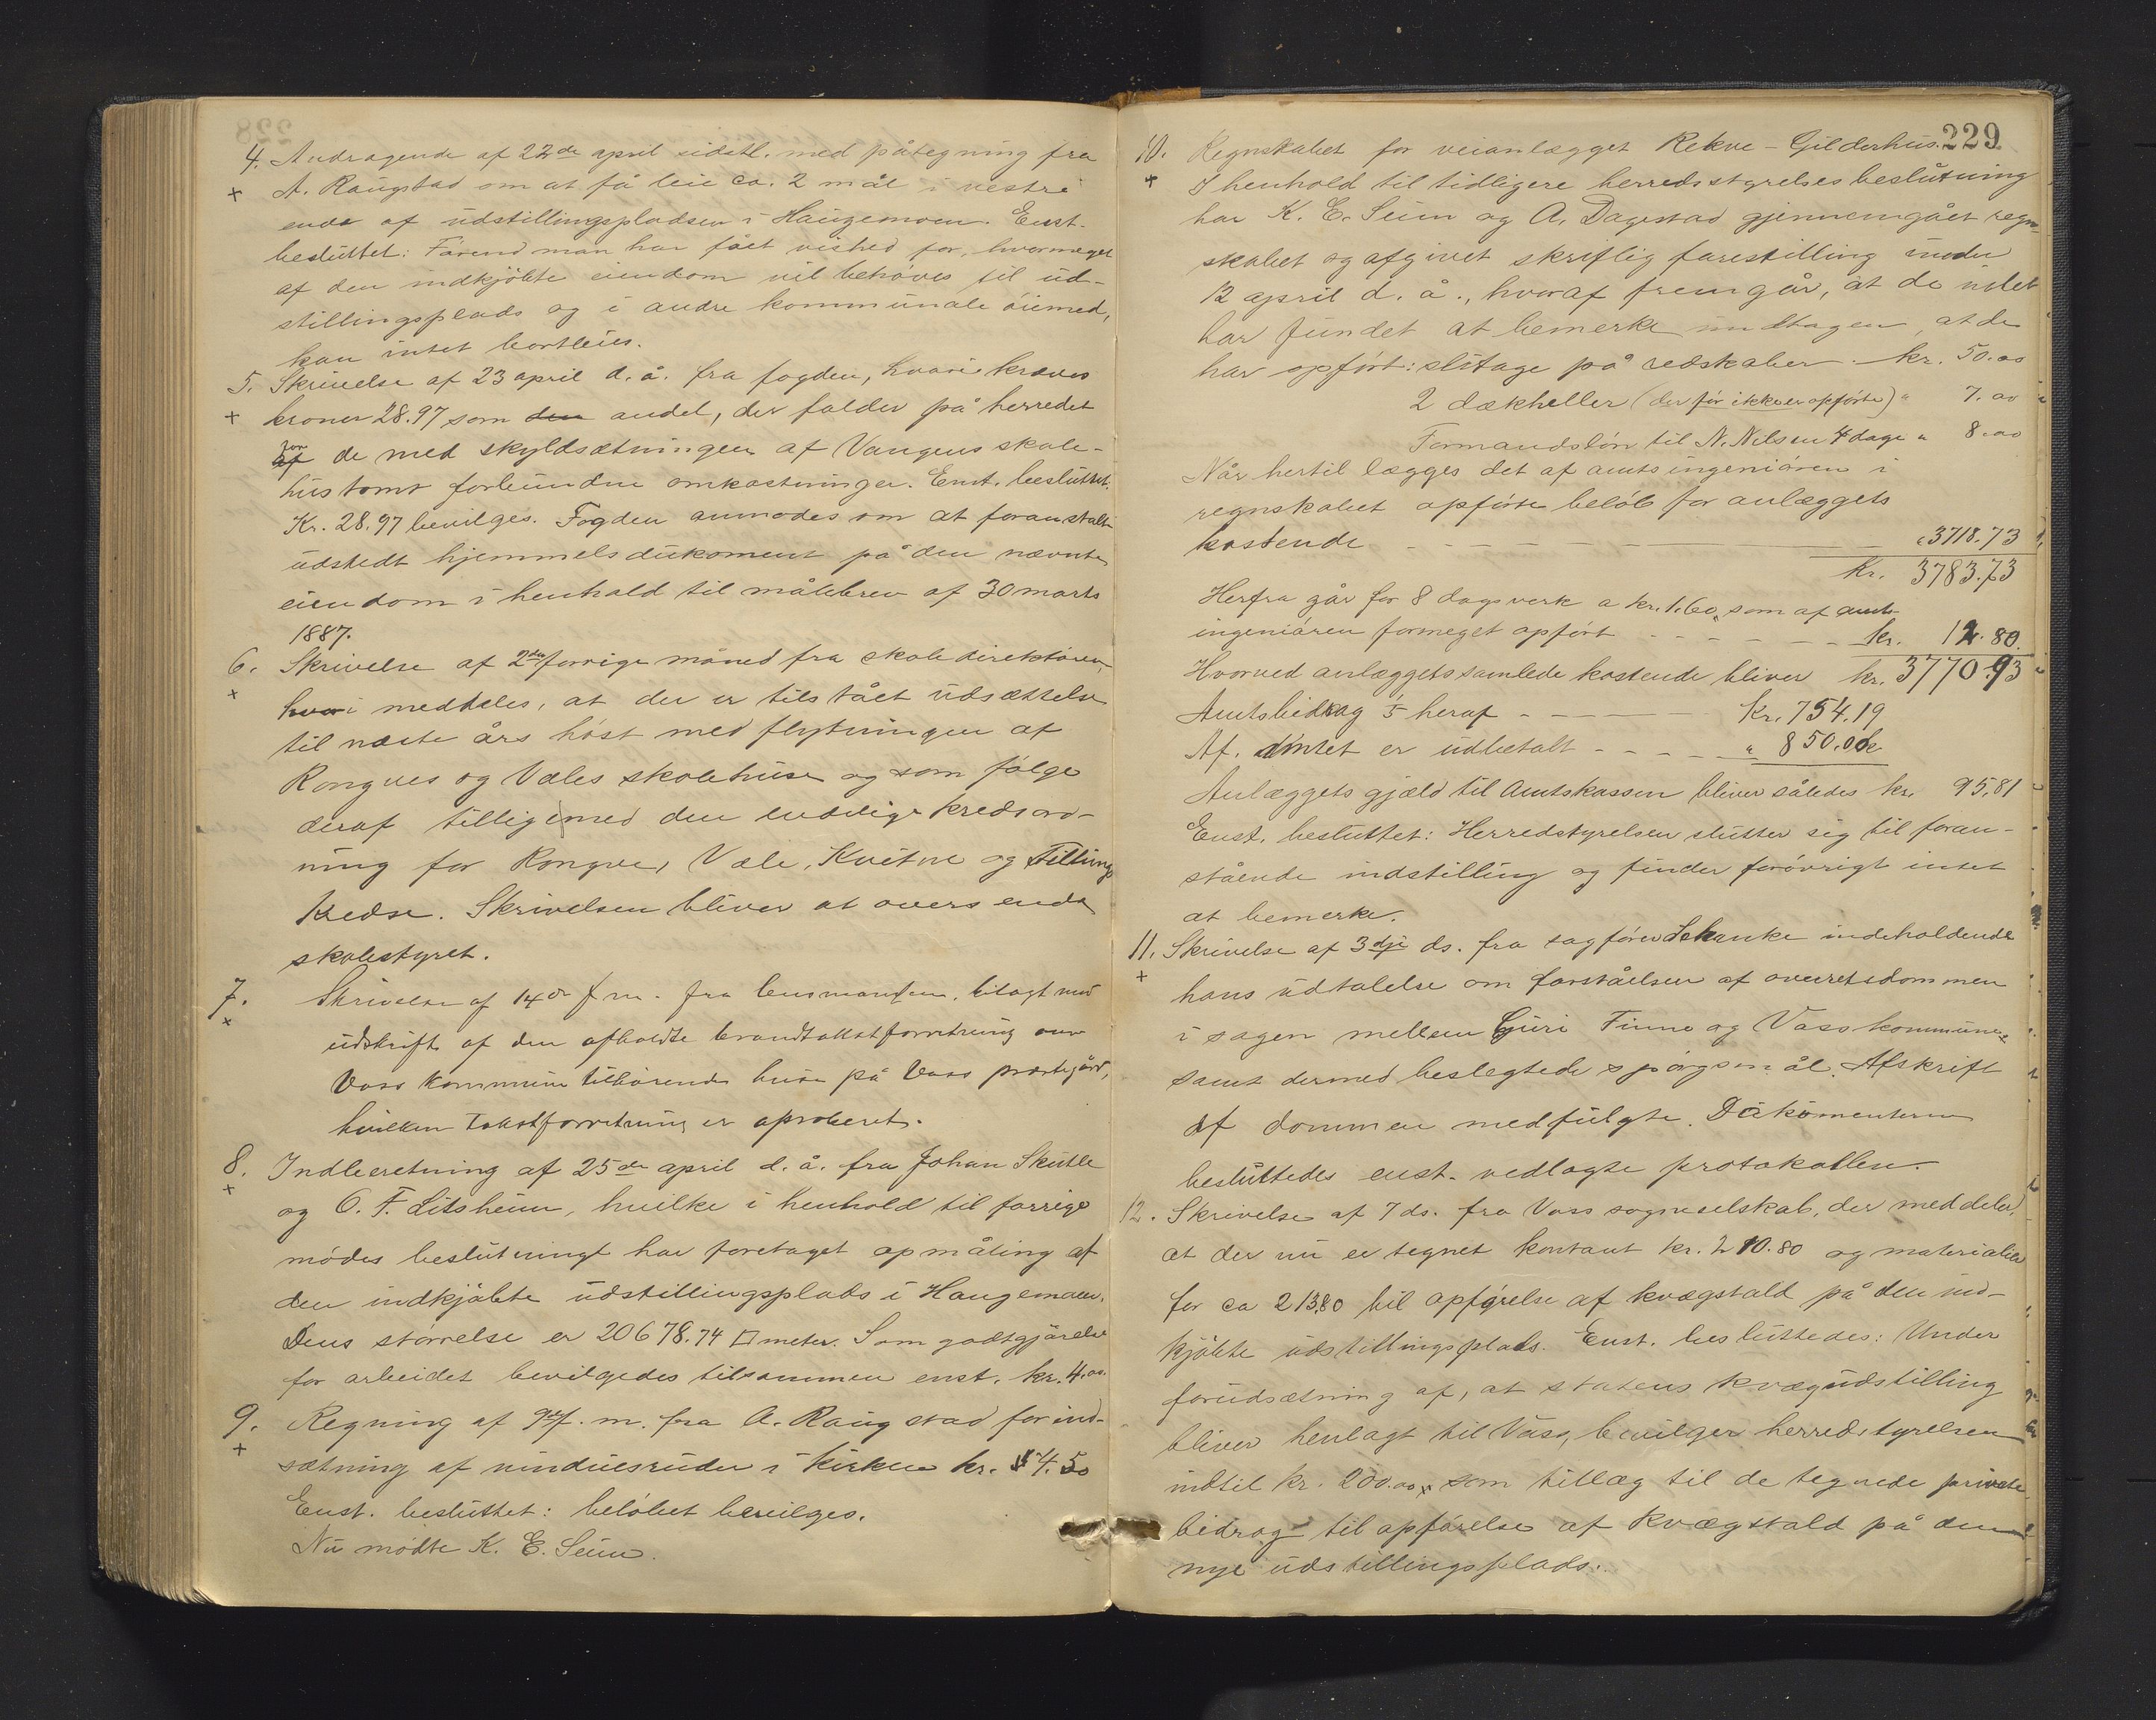 4. Andragende af 22de april sidstl. med påtegning fra
+ A. Raugstad om at få leie ca. 2 mål i vestre
ende af udstillingspladsen i Haugemoen. Enst.
besluttet: Førend man har fået vished for, hvormeget
af den indkjöbte eiendom vil behöves til ud-
stillingsplads og i andre kommunale öiemed,
kan intet bortleies.
5. Skrivelse af 23 april d. å. fra fogden, hvori kræves
+ kroner 28.97 som den andel, der falder på herredet
for de med skyldsætningen af Vangens skole-
hustomt forbundne omkostninger. Enst. besluttet:
Kr. 28.97 bevilges. Fogden anmodes om at foranstalte
udstedt hjemmelsdokument på den nævnte
eiendom i henhold til målebrev af 30 marts
1887.
6. Skrivelse af 2den forrige måned fra skoledirektören,
+ hvori meddeles, at der er tilstået udsættelse
til næste års höst med flytningen af
Rongves og Væles skolehuse og som fölge
deraf tillige med den endelige kredsord-
ning for Rongve, Væle, Kvitne og Tillung
kredse. Skrivelsen bliver at oversende
skolestyret.
7. Skrivelse af 14de f. m. fra lensmanden, bilagt med
+ udskrift af den afholdte brandtakstforretning over
Voss kommune tilhörende huse på Voss prestegård,
hvilken takstforretning er aproberet.
8. Indberetning af 25de april d. å. fra Johan Skutle
+ og O. F. Litsheim, hvilke i henhold til forrige
mödes beslutning har foretaget opmåling af
den indkjöbte udstillingsplads i Haugemoen.
Dens störrelse er 20678.74 □ meter. Som godtgjörelse
for arbeidet bevilgedes tilsammen enst. kr. 4.00.
9. Regning af 9de f. m. fra A. Raugstad for ind-
+ sætning af vinduesruder i kirken kr. 4.50
Enst. besluttet: belöbet bevilges.
Nu mödte K. E. Seim.
229
10. Regnskabet for veianlægget Rekve - Gilderhus.
+ I henhold til tidligere herredsstyrelsesbeslutning
har K. E. Seim og A. Dagestad gjennemgået regn-
skabet og afgivet skriftlig forestilling under
12 april d. å., hvoraf fremgår, at de intet
har fundet at bemerke undtagen, at de
har opfört: slitage på redskaber - kr. 50.00
2 dækheller (der för ikke er opförte) " 7.00
Formandslön til N. Nilsen 4 dage " 8.00
Når hertil lægges det af amtsingeniören i
regnskabet opförte belöb for anlæggets
kostende - - - - " 3718.73
Kr. 3783.73
Herfra går for 8 dagsverk a kr. 1.60, som af amts-
ingeniören formeget opfört - - - - kr. 12.80.
Hvorved anlæggets samlede kostende bliver kr. 3770.93
Amtsbidrag 1/5 heraf - - - Kr. 754.19
Af Amtet er udbetalt - - - - " 850.00
Anlæggets gjæld til Amtskassen bliver således kr. 95,81
Enst. besluttet: Herredstyrelsen slutter sig til foran-
stående indstilling og finder forövrigt intet
at bemerke.
11. Skrivelse af 3dje ds. fra sagförer Schanke indeholdende
+ hans udtalelse om forståelsen af overretsdommen
i sagen mellem Guri Finne og Voss kommune
samt dermed beslegtede spörgsmål. Afskrift
af dommen medfulgte. Dokumenterne
besluttedes enst. vedlagte protokollen.
12. Skrivelse af 7 ds. fra Voss sogneselskab, der meddeler,
at der nu er tegnet kontant kr. 210.80 og materialier
for ca 213.80 til opförelse af kvægstald på den ind-
kjöbte udstillingsplads. Enst. besluttedes: Under
forudsætning af, at statens kvægudstilling
bliver henlagt til Voss, bevilger herredstyrelsen
indtil kr. 200.00 som tillæg til de tegnede private
bidrag til opförelse af kvægstald på den
nye udstillingsplads.